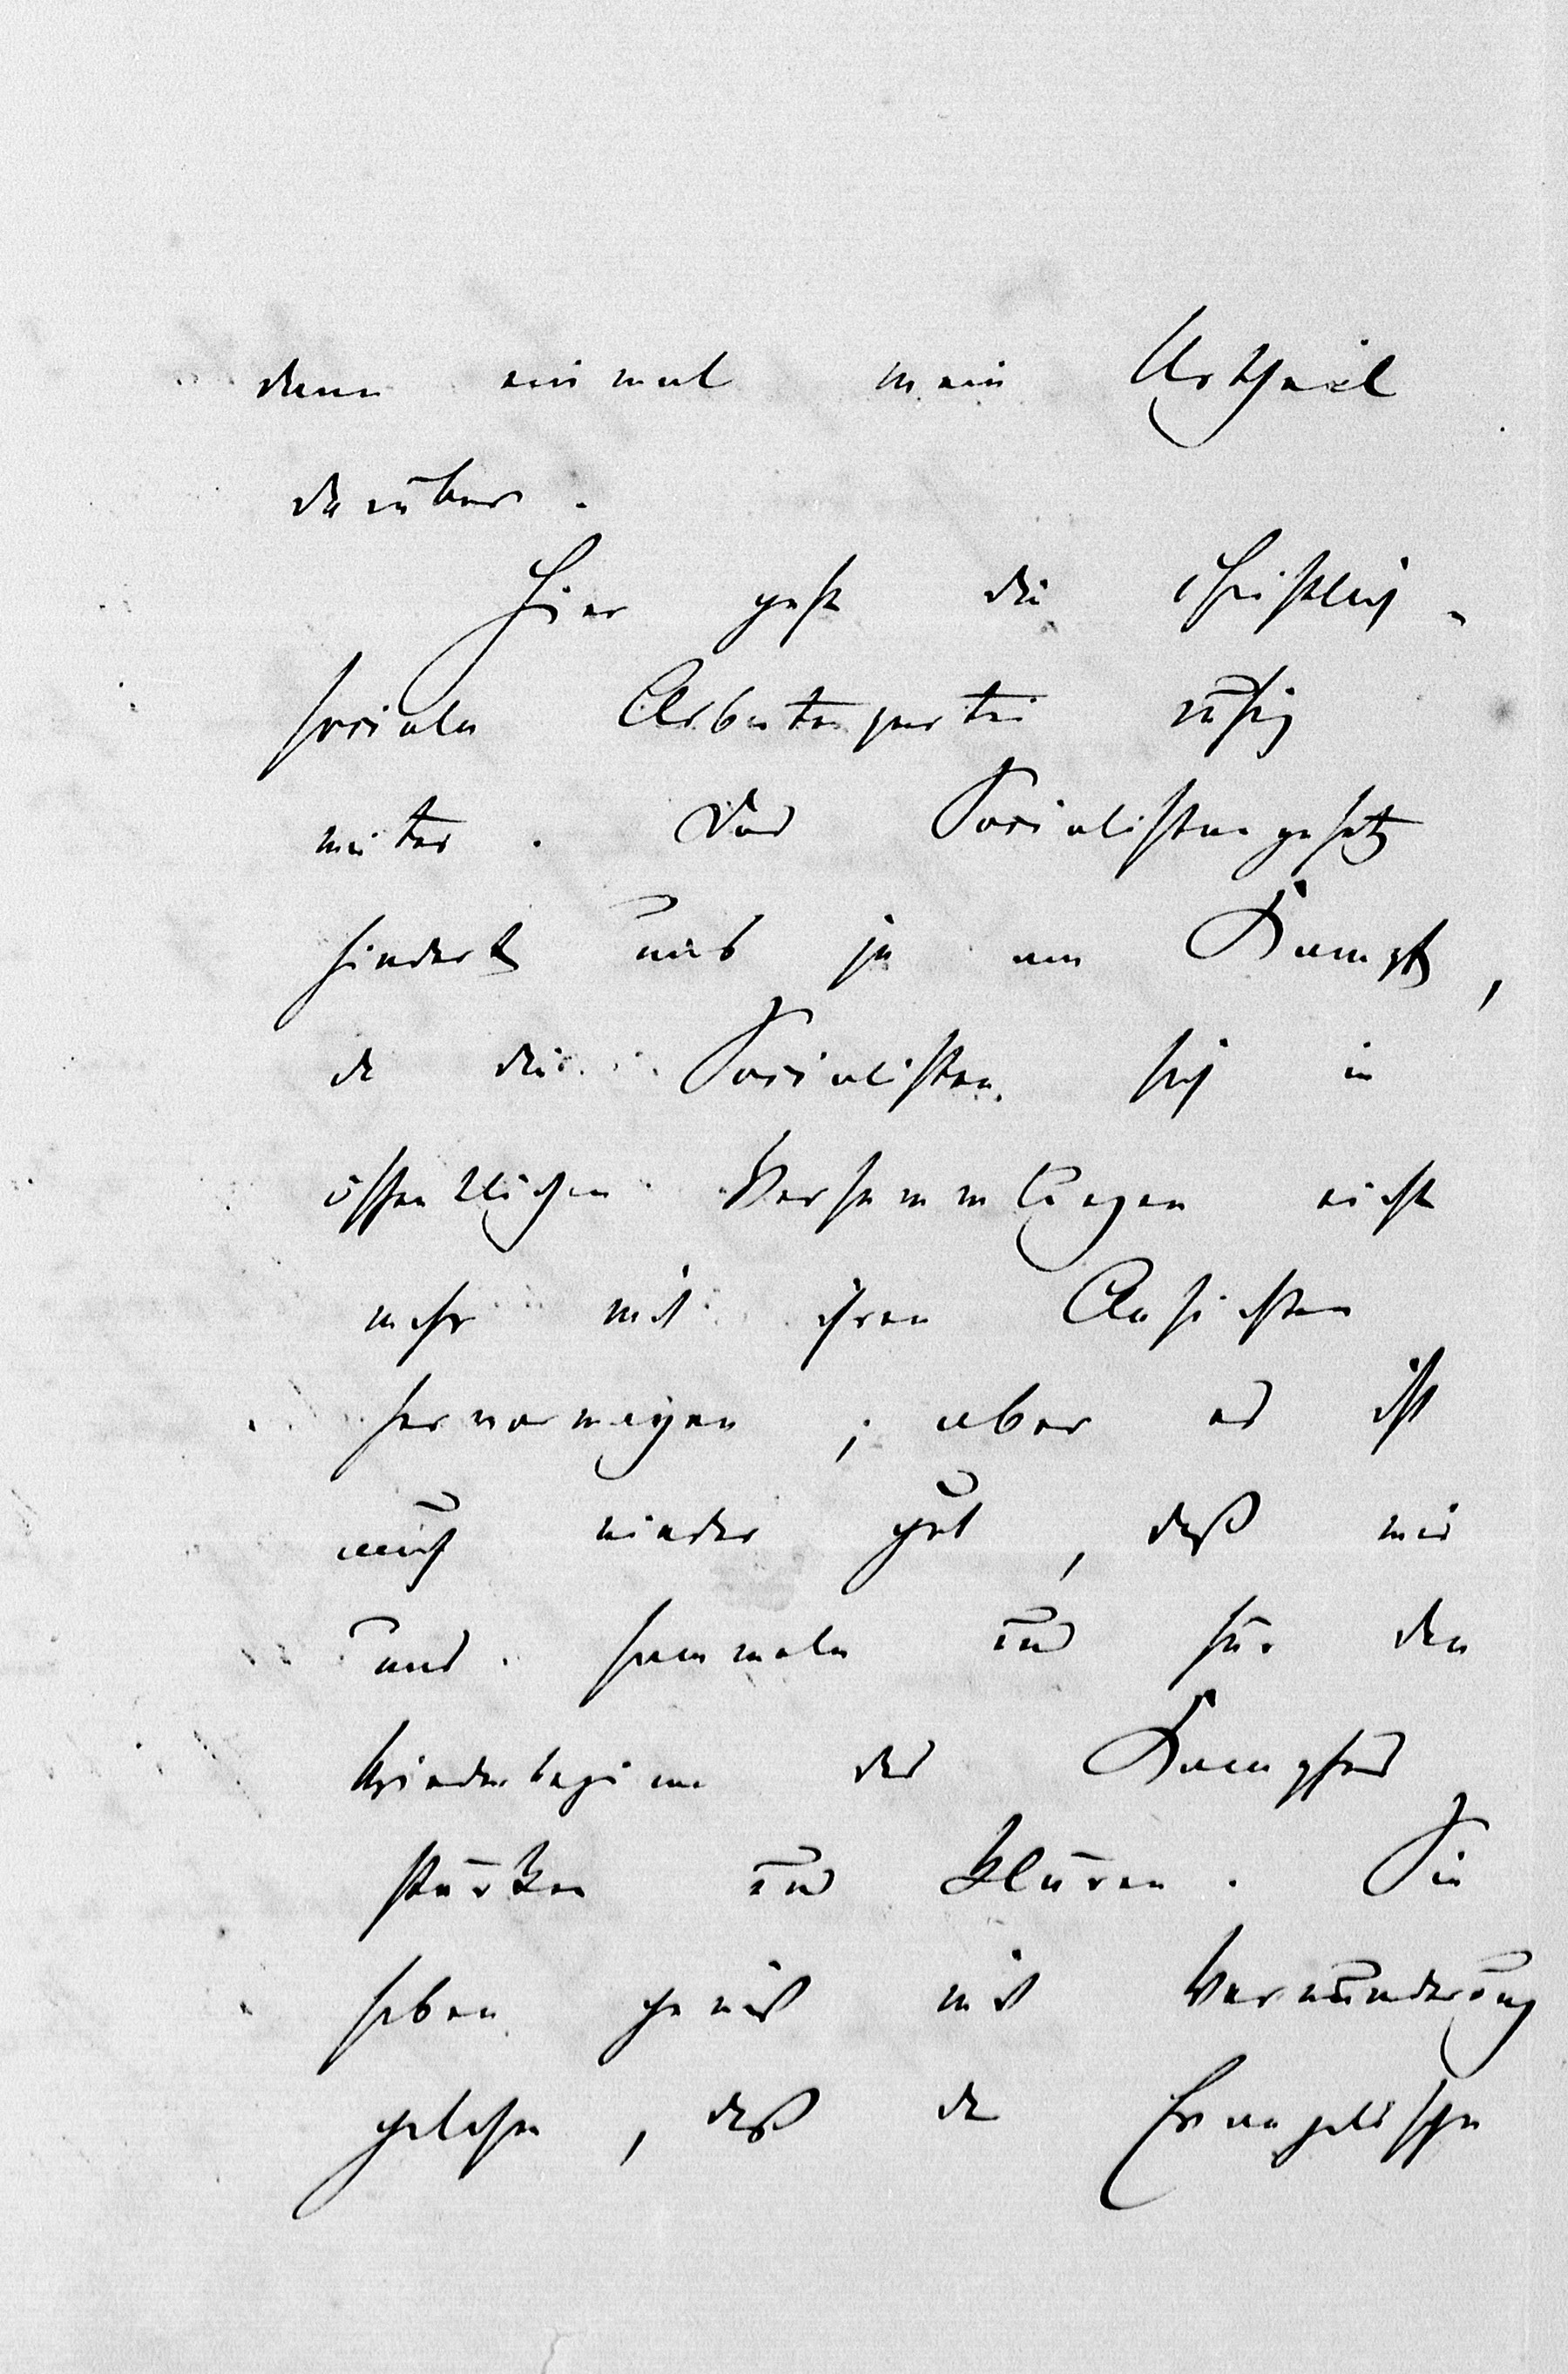 dann einmal mein Urtheil
darüber.
Hier geht die christlich-
sociale Arbeiterpartei ruhig
weiter. Das Socialistengesetz
hindert uns ja am Kampf,
da die Socialisten sich in
öffentlichen Versammlungen nicht
mehr mit ihren Ansichten
hervorwagen; aber es ist
auch wieder gut, daß wir
uns sammeln und für den
Wiederbeginn des Kampfes
stärken und klären. Sie
haben gewiß mit Verwunderung
gelesen, daß der Evangelische